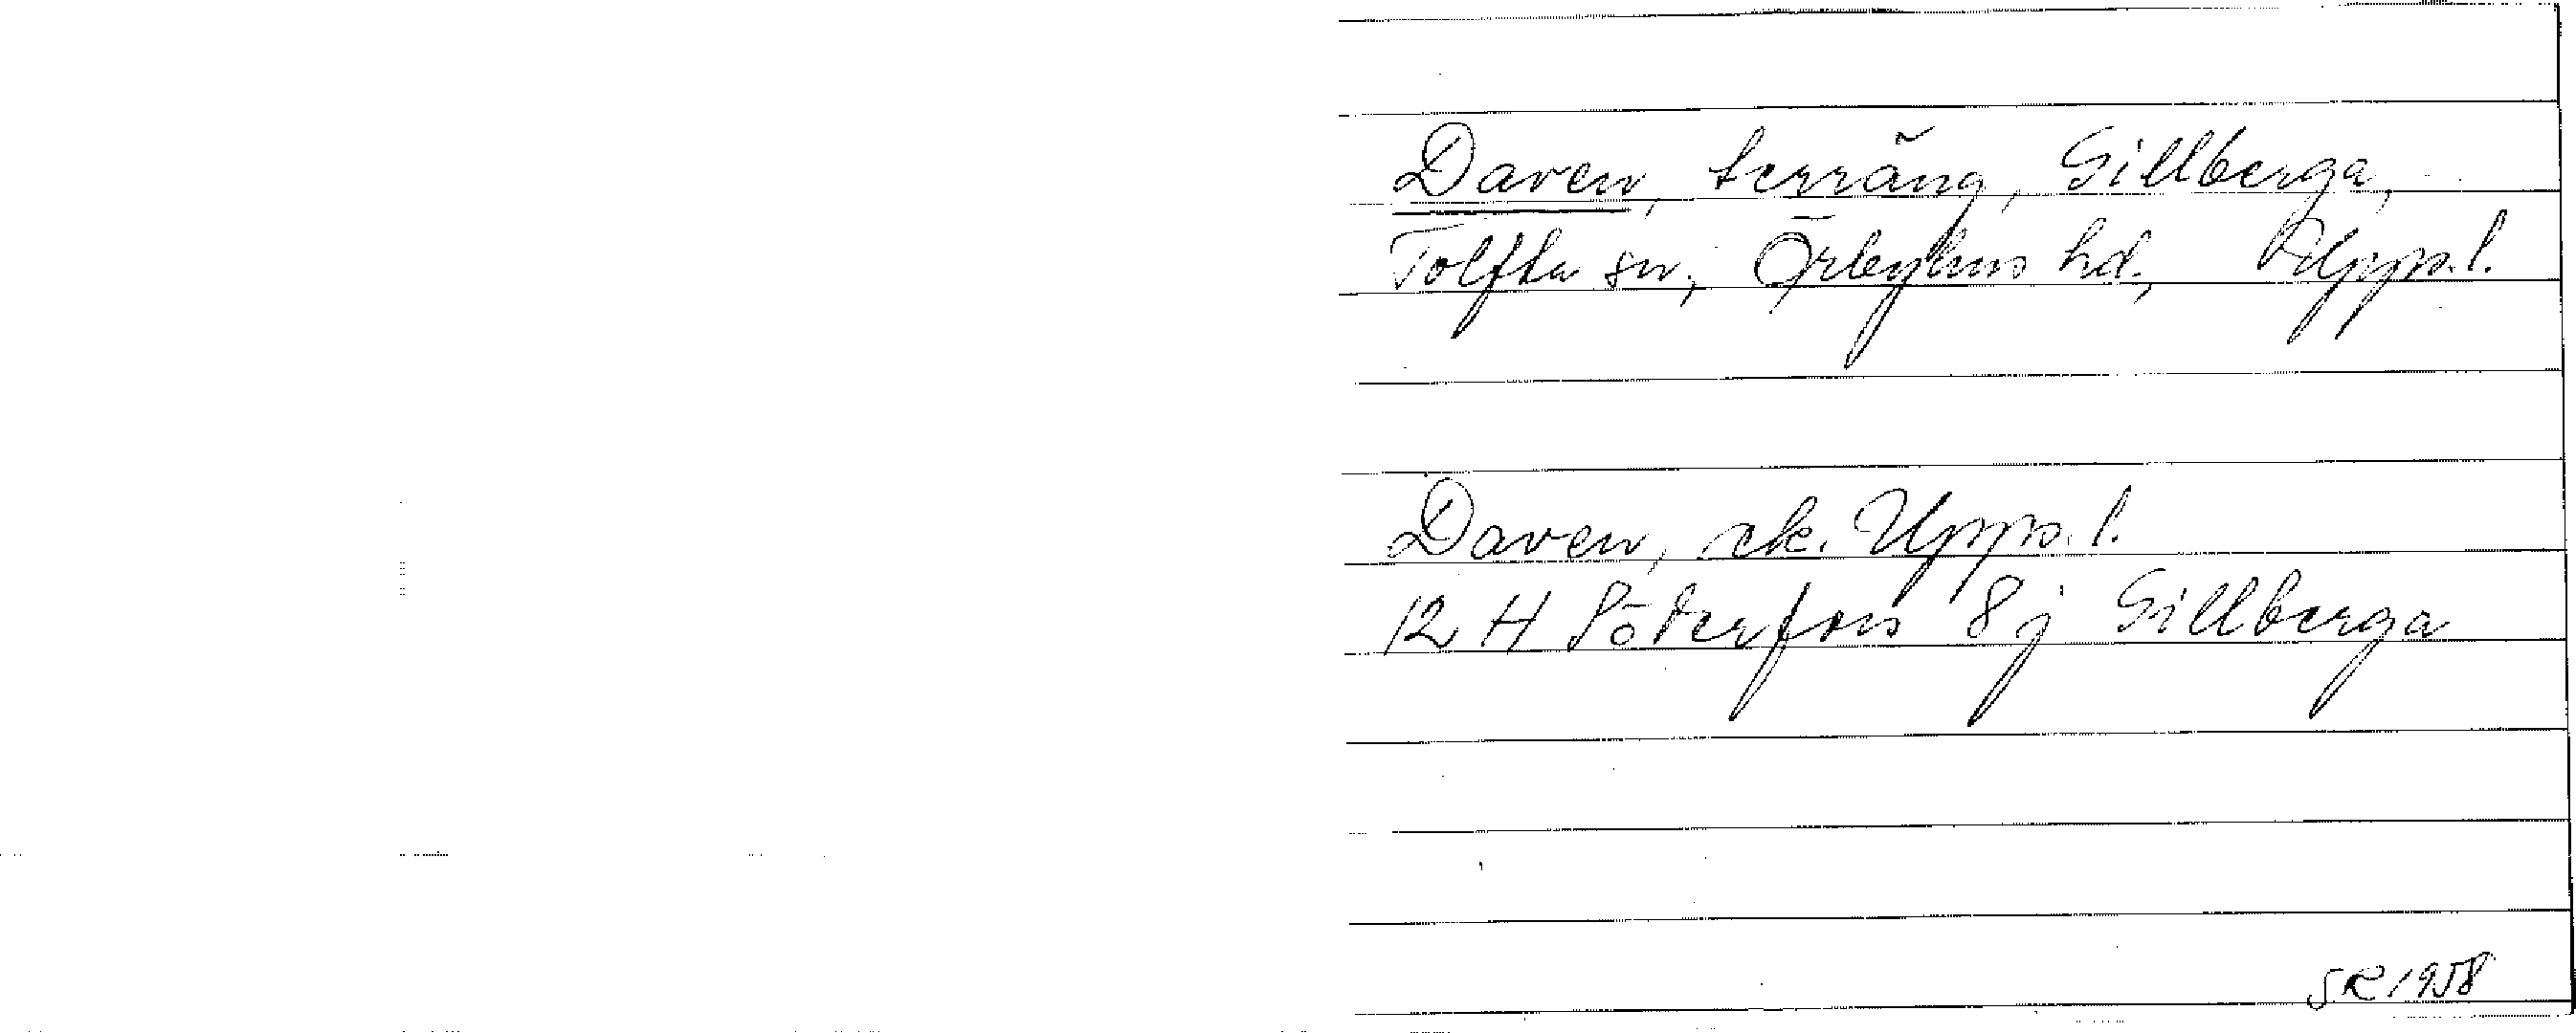 Daven, terräng, Gillberga,
Tolfta sn, Örbyhus hd, Upps. l.
Daven, ek. Upps. l.
12 H Söderfors 8j Gillberga
SR 1958